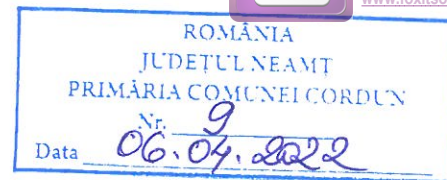 www.foxitso
ROMÂNIA
JUDEȚUL NEAMȚ
PRIMĂRIA COMUNEI CORDUN
Nr. 9
Data 06.04.2022